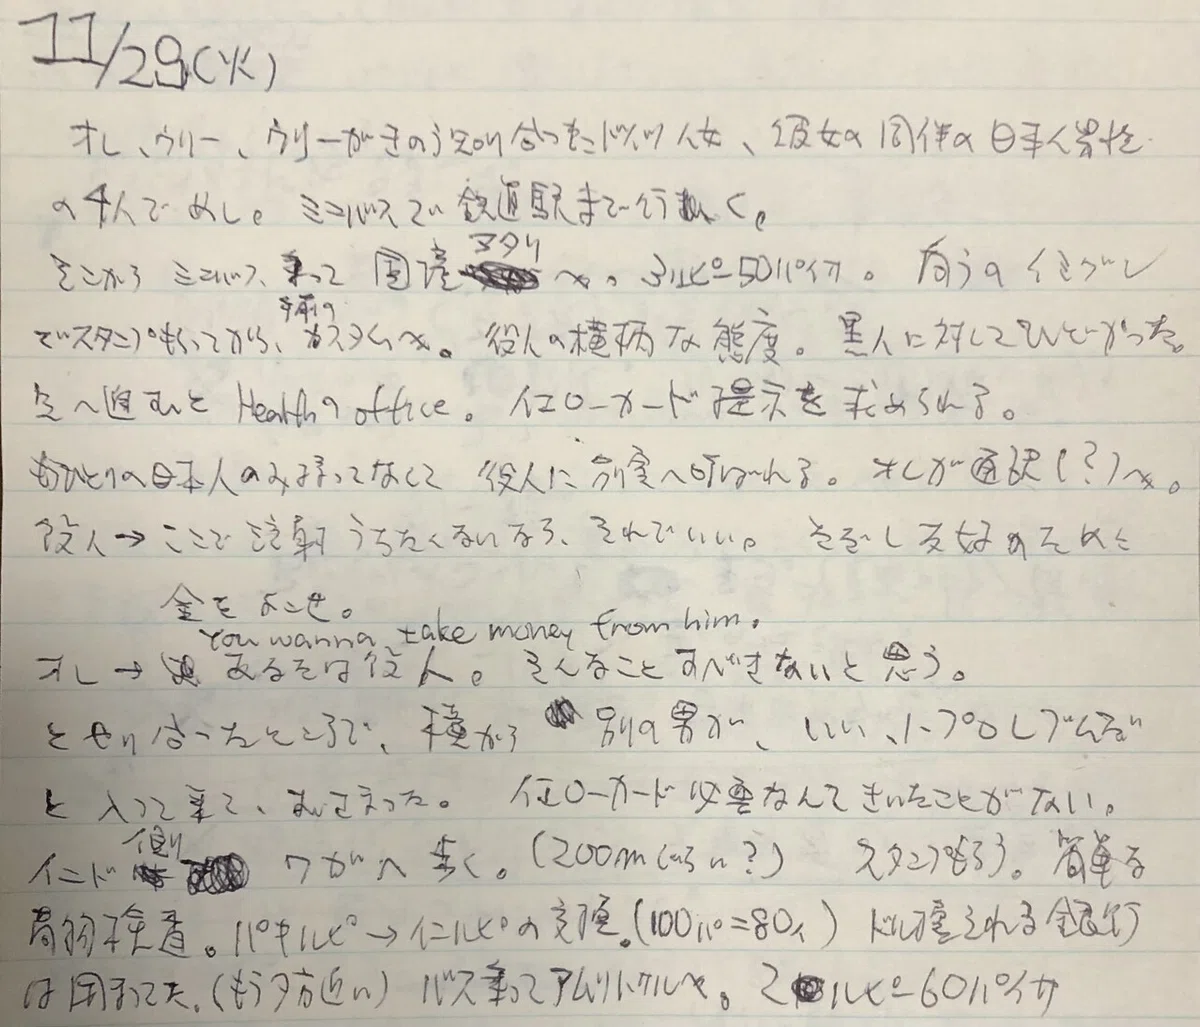 11/29(火)
オレ、ウリー、ウリーがきのう知り合ったドイツ人女、彼女の同伴の日本人男性
の4人でめし。ミニバスで鉄道駅まで行く。
マタリ
そこからミニバス、乗って国境へ。3ルピー50パイサ。向うのイミグレ
手前の
でスタンプもらってから、カスタムへ。役人の横柄な態度。黒人に対してひどかった。
先へ進むと Healthのoffice。イエローカード提示を求められる。
もうひとりの日本人のみ持ってなくて役人に別室へ呼ばれる。オレが通訳(?)へ。
役人→ここで注射うちたくないなら、それでいい。 友好のために
金をよこせ。
You wanna take money from him.
オレ→あなたは役人。そんなことすべきでないと思う。
とせり合ったところで、横から別の男が、いい、ノープロレブムだ
と入って来て、おさまった。イエローカード必要なんてきいたことがない。
側
インド ワガへ歩く。(200mぐらい?) スタンプもらう。簡単な
荷物検査。パキルピ→インルピの交換。(100パ=80イ) ドル換えれる銀行
は閉まってた。(もう夕方近い) バス乗ってアムリトサルへ。2ルピー60パイサ